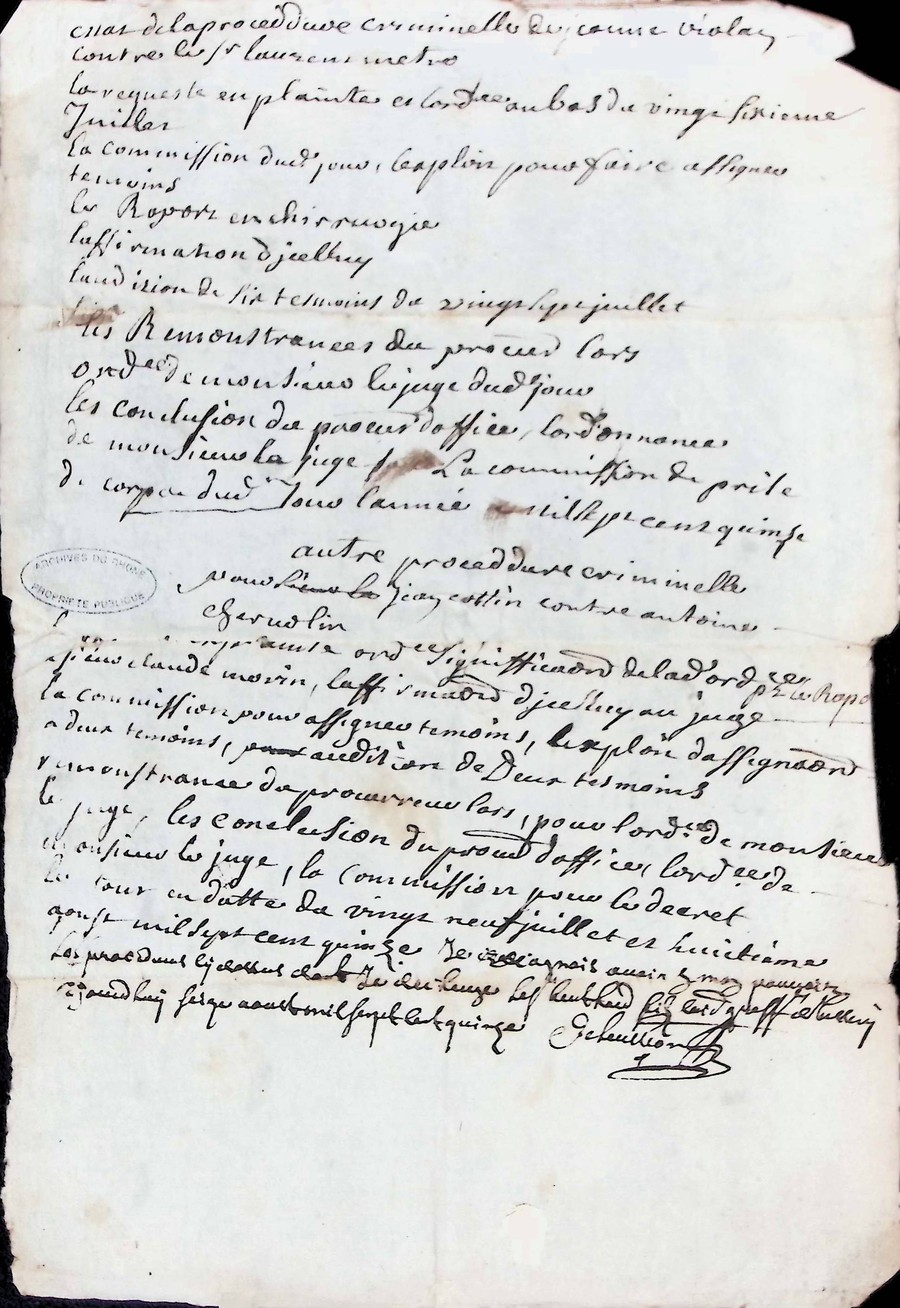 estat de la proceddure criminelle de jeanne violay
contre le sr laurens metro
la requeste en plainte et lordce au bas du vingt sixieme
Juillet
la commission dud jour, lexploit pour faire assigner
temoins
le Raport en chirrurgie
laffirmation dicelluy
laudision de six tesmoins du vingt sept juillet
les Remonstrances du procur lors
ordce de monsieur le juge dud jour
les conclusion du procur doffice, lordonnance
de monsieur le juge La commission de prise
de corps dud Jour lannée mil sept cent quinse
autre proceddure criminelle
pour sieur la jean cottin contre antoine
ARCHIVES DU RHONE
PROPRIETE PUBLIQUE
ordce signiffication de lad ordce le Rapo
sieur claude morin, laffirmaon dicelluy au juge
la commission pour assigner temoins, lexploit dassignaon
a deux temoins, audition de Deux tesmoins
remonstrance du procurreur lors, pour lordce de monsieur
le juge, les conclusion du procur doffice, lordce de
monsieur le juge, la Commission pour le decret
le tour en datte du vingt neuf juillet et huitième
aoust mil sept cent quinze Je avoir mon pouvoir
les procedures cy dessus
aoust mil sept cent quinze